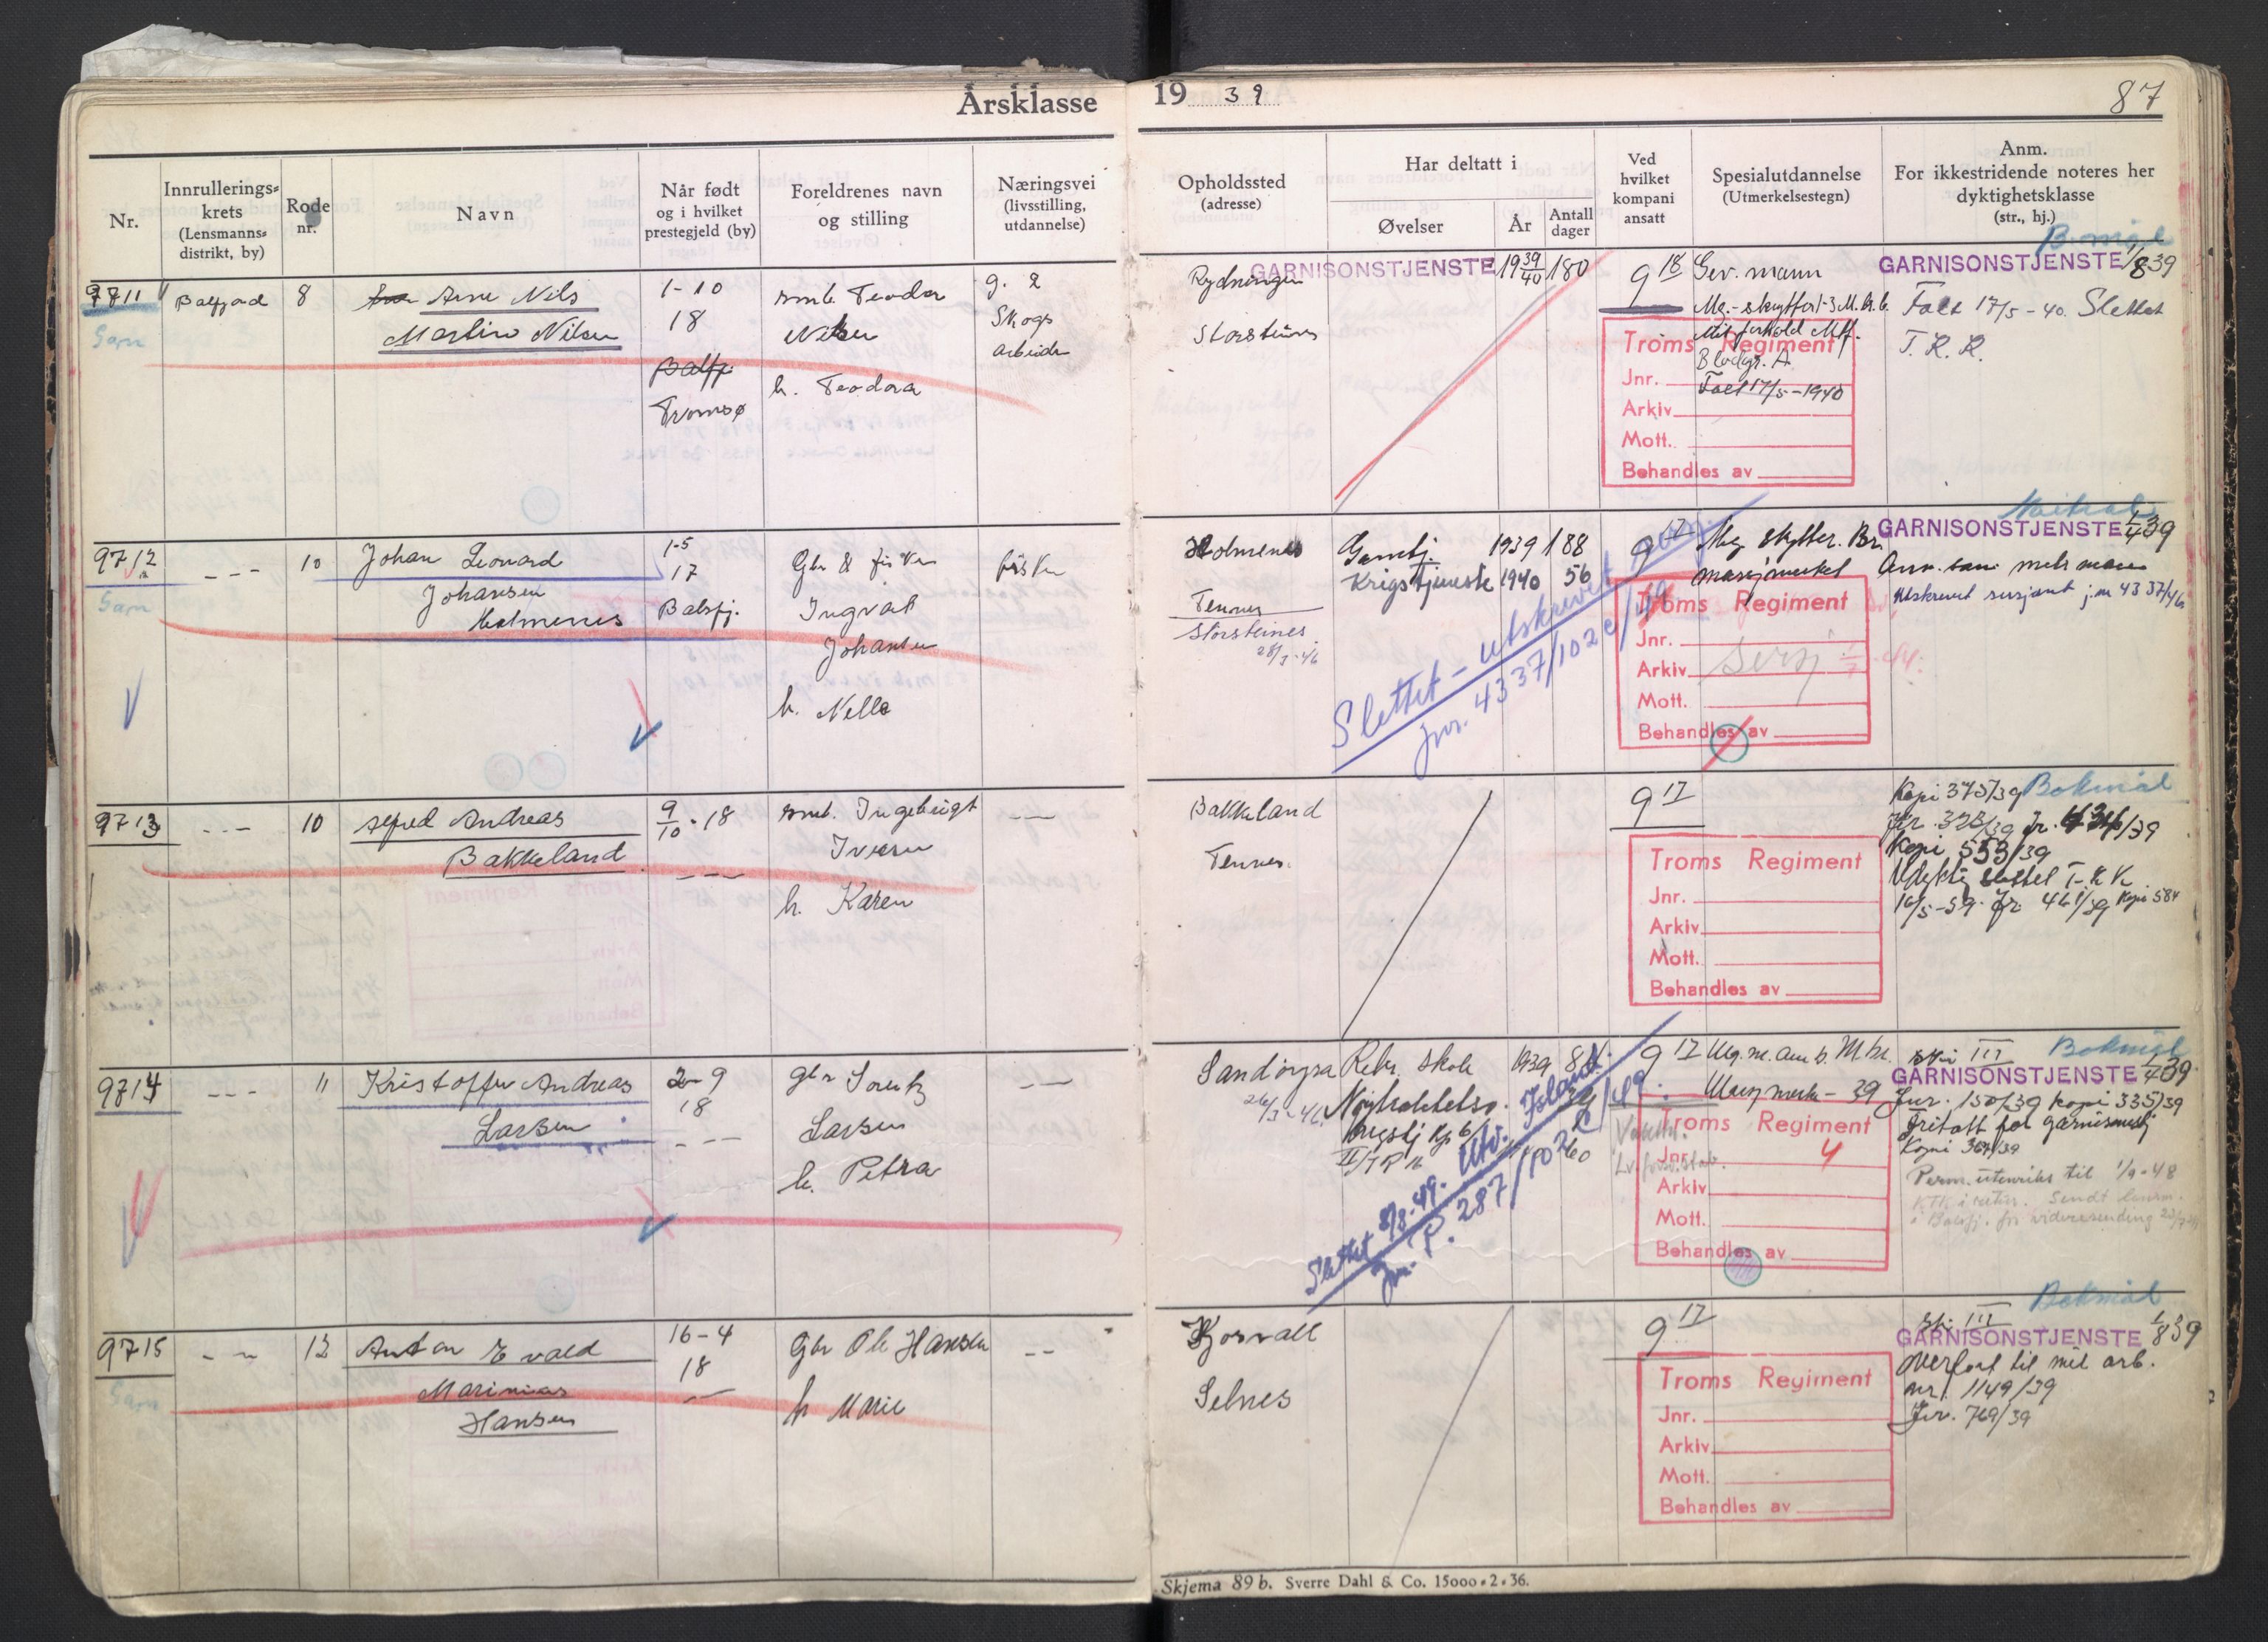 Årsklasse 19 39
87
Nr.
Innrullerings-
krets
(Lensmanns-
distrikt, by)
Rode
nr.
Navn
Når født
og i hvilket
prestegjeld (by)
Foreldrenes navn
og stilling
Næringsvei
(livsstilling,
utdannelse)
Opholdssted
(adresse)
Har deltatt i
Øvelser
År
Antall
dager
Ved
hvilket
kompani
ansatt
Spesialutdannelse
(Utmerkelsestegn)
Anm.
For ikkestridende noteres her
dyktighetsklasse
(str., hj.)
9711
Garn
Balsfjord
8
Arne Nils
Martin Nilsen
1-10
18
Balsfj.
Tromsø
smb. Teodor
Nilsen
h. Teodora
g. 2
Skogs
arbeider
Rydningen
Storsteines
GARNISONSTJENSTE
19 39/40
180
9 18
Gev. mann
Mg.-skytter 1-3 M.br.6.
Mil forhold Mtf.
Blodgr. A
Falt 17/5-1940
Troms Regiment
Jnr.
Arkiv
Mott.
Behandles av
B.mål
GARNISONSTJENSTE 1/8 39
Falt 17/5-40. Slettet
T.R.R.
9712
Garn
---
10
Johan Leonard
Johansen
Holmenes
1-5
17
Balsfj.
Gbr & fisker
Ingvald
Johansen
h. Nella
fisker
Holmenes
Tennes
Storsteines
28/3-46
Garntj. 1939 188
Krigstjeneste 1940 56
Slettet - utskrevet
jnr. 4337/102c/49
9 17
Mg skytter. Br.
marsjmerket
Troms Regiment
Jnr.
Arkiv
Mott.
Behandles av
Sersj
Nøitral
GARNISONSTJENSTE 1/4 39
Ann. som mitr.mann
Utskrevet sersjant j.nr 4337/46
9713
---
10
Alfred Andreas
Bakkeland
9/10-18
---
smb. Ingebrigt
Iversen
h. Karen
---
Bakkeland
Tennes
9 17
Troms Regiment
Jnr.
Arkiv
Mott.
Behandles av
Kopi 375/39 Bokmål
Jr. 323/39 Jr. 434/39
Kopi 553/39
Udyktig slettet T.K.K
16/5-39. Jr 461/39 Kopi 584
9714
---
11
Kristoffer Andreas
Larsen
2-9
18
---
gbr Lorentz
Larsen
h. Petra
---
Sandøyra
26/3-46
Rekr. skole 1939 84
Nøytralitetsv.
Krigstj Kp 6/
II/IR 16
60
Slettet 8/8-49. Utv. Island.
Jnr. P. 287/102c/49.
9 17
Mg. m. am b. M.br.
Marsj merke - 39
Troms Regiment
Jnr. 4
Arkiv
Mott.
Behandles av
Bokmål
Ski III
GARNISONSTJENSTE 1/4 39
Jnr. 150/39 kopi 335/39
Fritatt for garnisonstj
Kopi 364/39
Perm. utenriks til 1/9-48
KTK i retur. Sendt lensm.
i Balsfj. for videresending
9715
Garn
--
12
Anton Evald
Marinius
Hansen
16-4
18
---
Gbr Ole Hansen
h Marie
--
Kjosvoll
Selnes
9 17
Troms Regiment
Jnr.
Arkiv
Mott.
Behandles av
Bokmål
Ski III
GARNISONSTJENSTE 1/8 39
Overført til mil arb.
nr. 1149/39
Jnr. 769/39
Skjema 89 b. Sverre Dahl & Co. 15000.2.36.